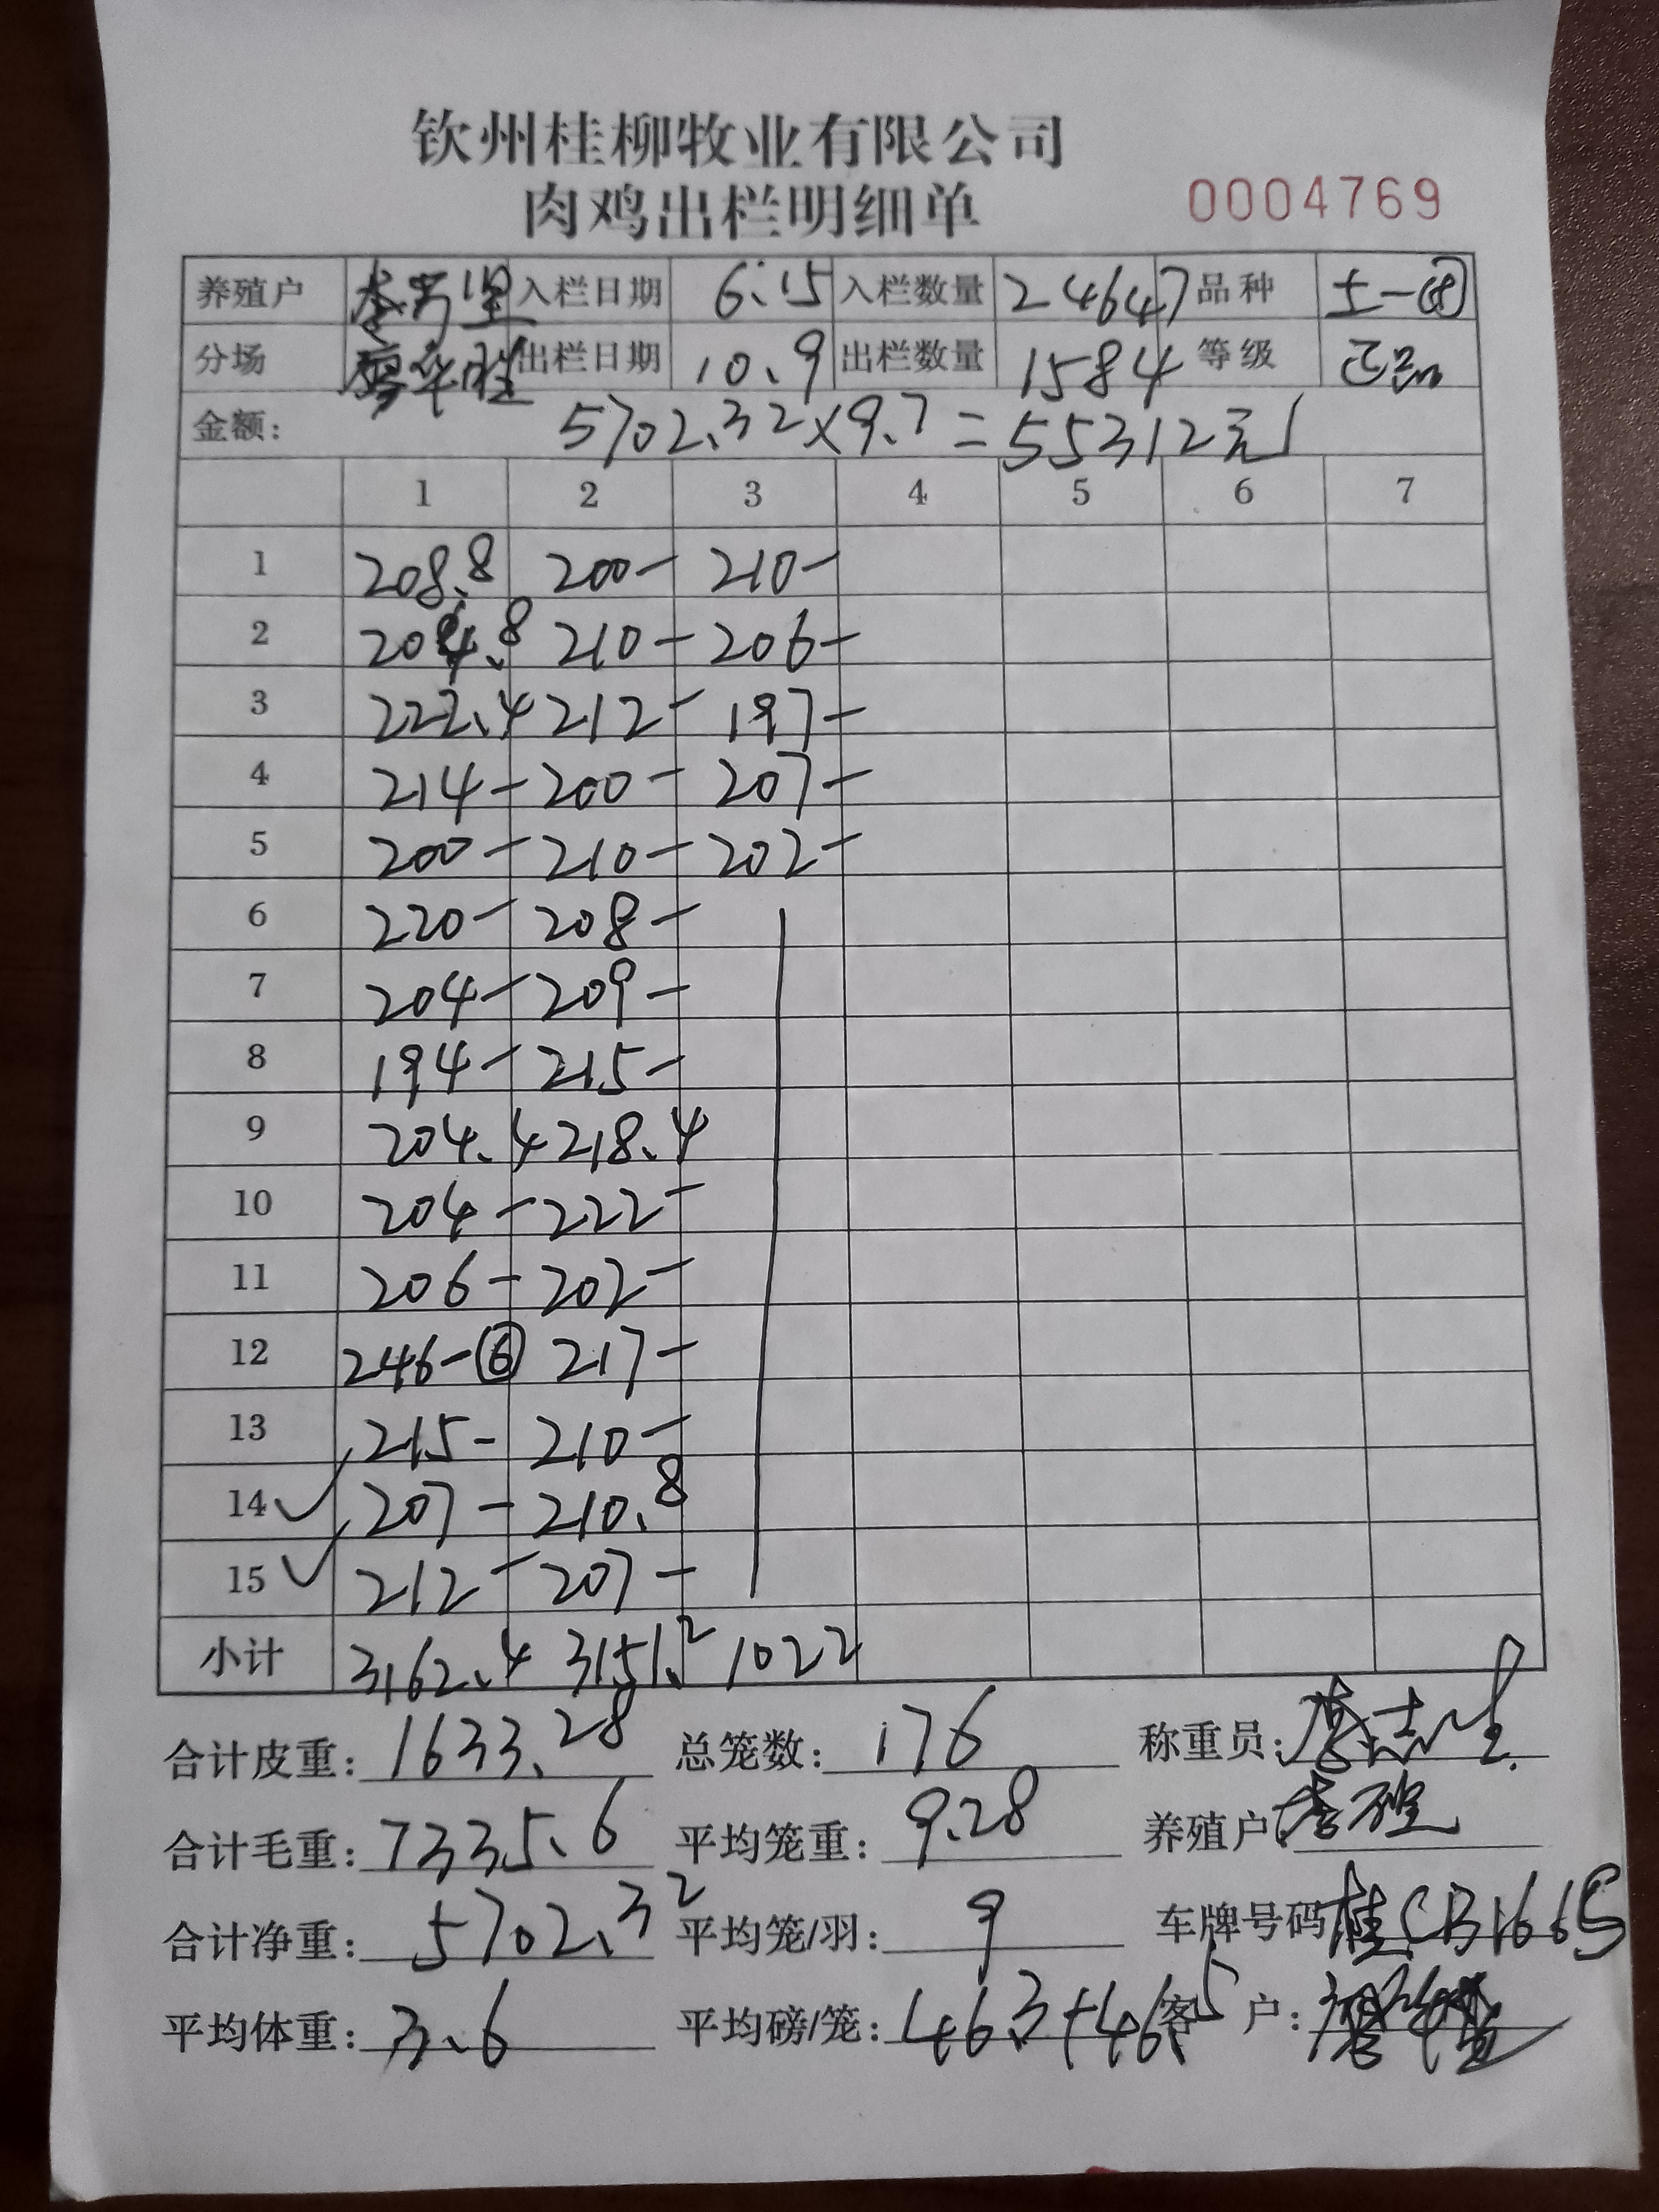 钦州桂柳牧业有限公司
肉鸡出栏明细单 0004769
养殖户 李 入栏日期 6.15 入栏数量 24647 品种 土一
分场 廖华胜 出栏日期 10.9 出栏数量 1584 等级 正品
金额: 5702.32×9.7=55312元
1 2 3 4 5 6 7
1 208.8 200- 210-
2 204.8 210- 206-
3 222.4 212- 197-
4 214- 200- 207-
5 200- 210- 202-
6 220- 208-
7 204- 209-
8 194- 215-
9 204.4 218.4
10 204- 222-
11 206- 202-
12 246-⑥ 217-
13 215- 210-
14 ✓ 207- 210.8
15 ✓ 212- 207-
小计 3162.4 3151.2 1022
合计皮重: 1633.28 总笼数: 176 称重员:
合计毛重: 7335.6 平均笼重: 9.28 养殖户: 李
合计净重: 5702.32 平均笼/羽: 9 车牌号码 桂CB1665
平均体重: 3.6 平均磅/笼: 46.3+46.5 客户: